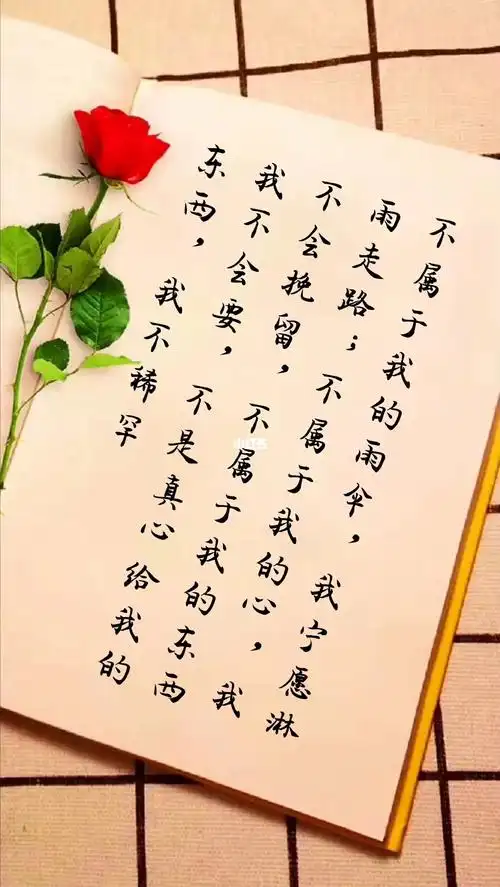 不属于我的雨伞,我宁愿淋
雨走路;不属于我的心,我
不会挽留,不属于我的东西
我不会要,不是真心给我的
东西,我不稀罕
小红书